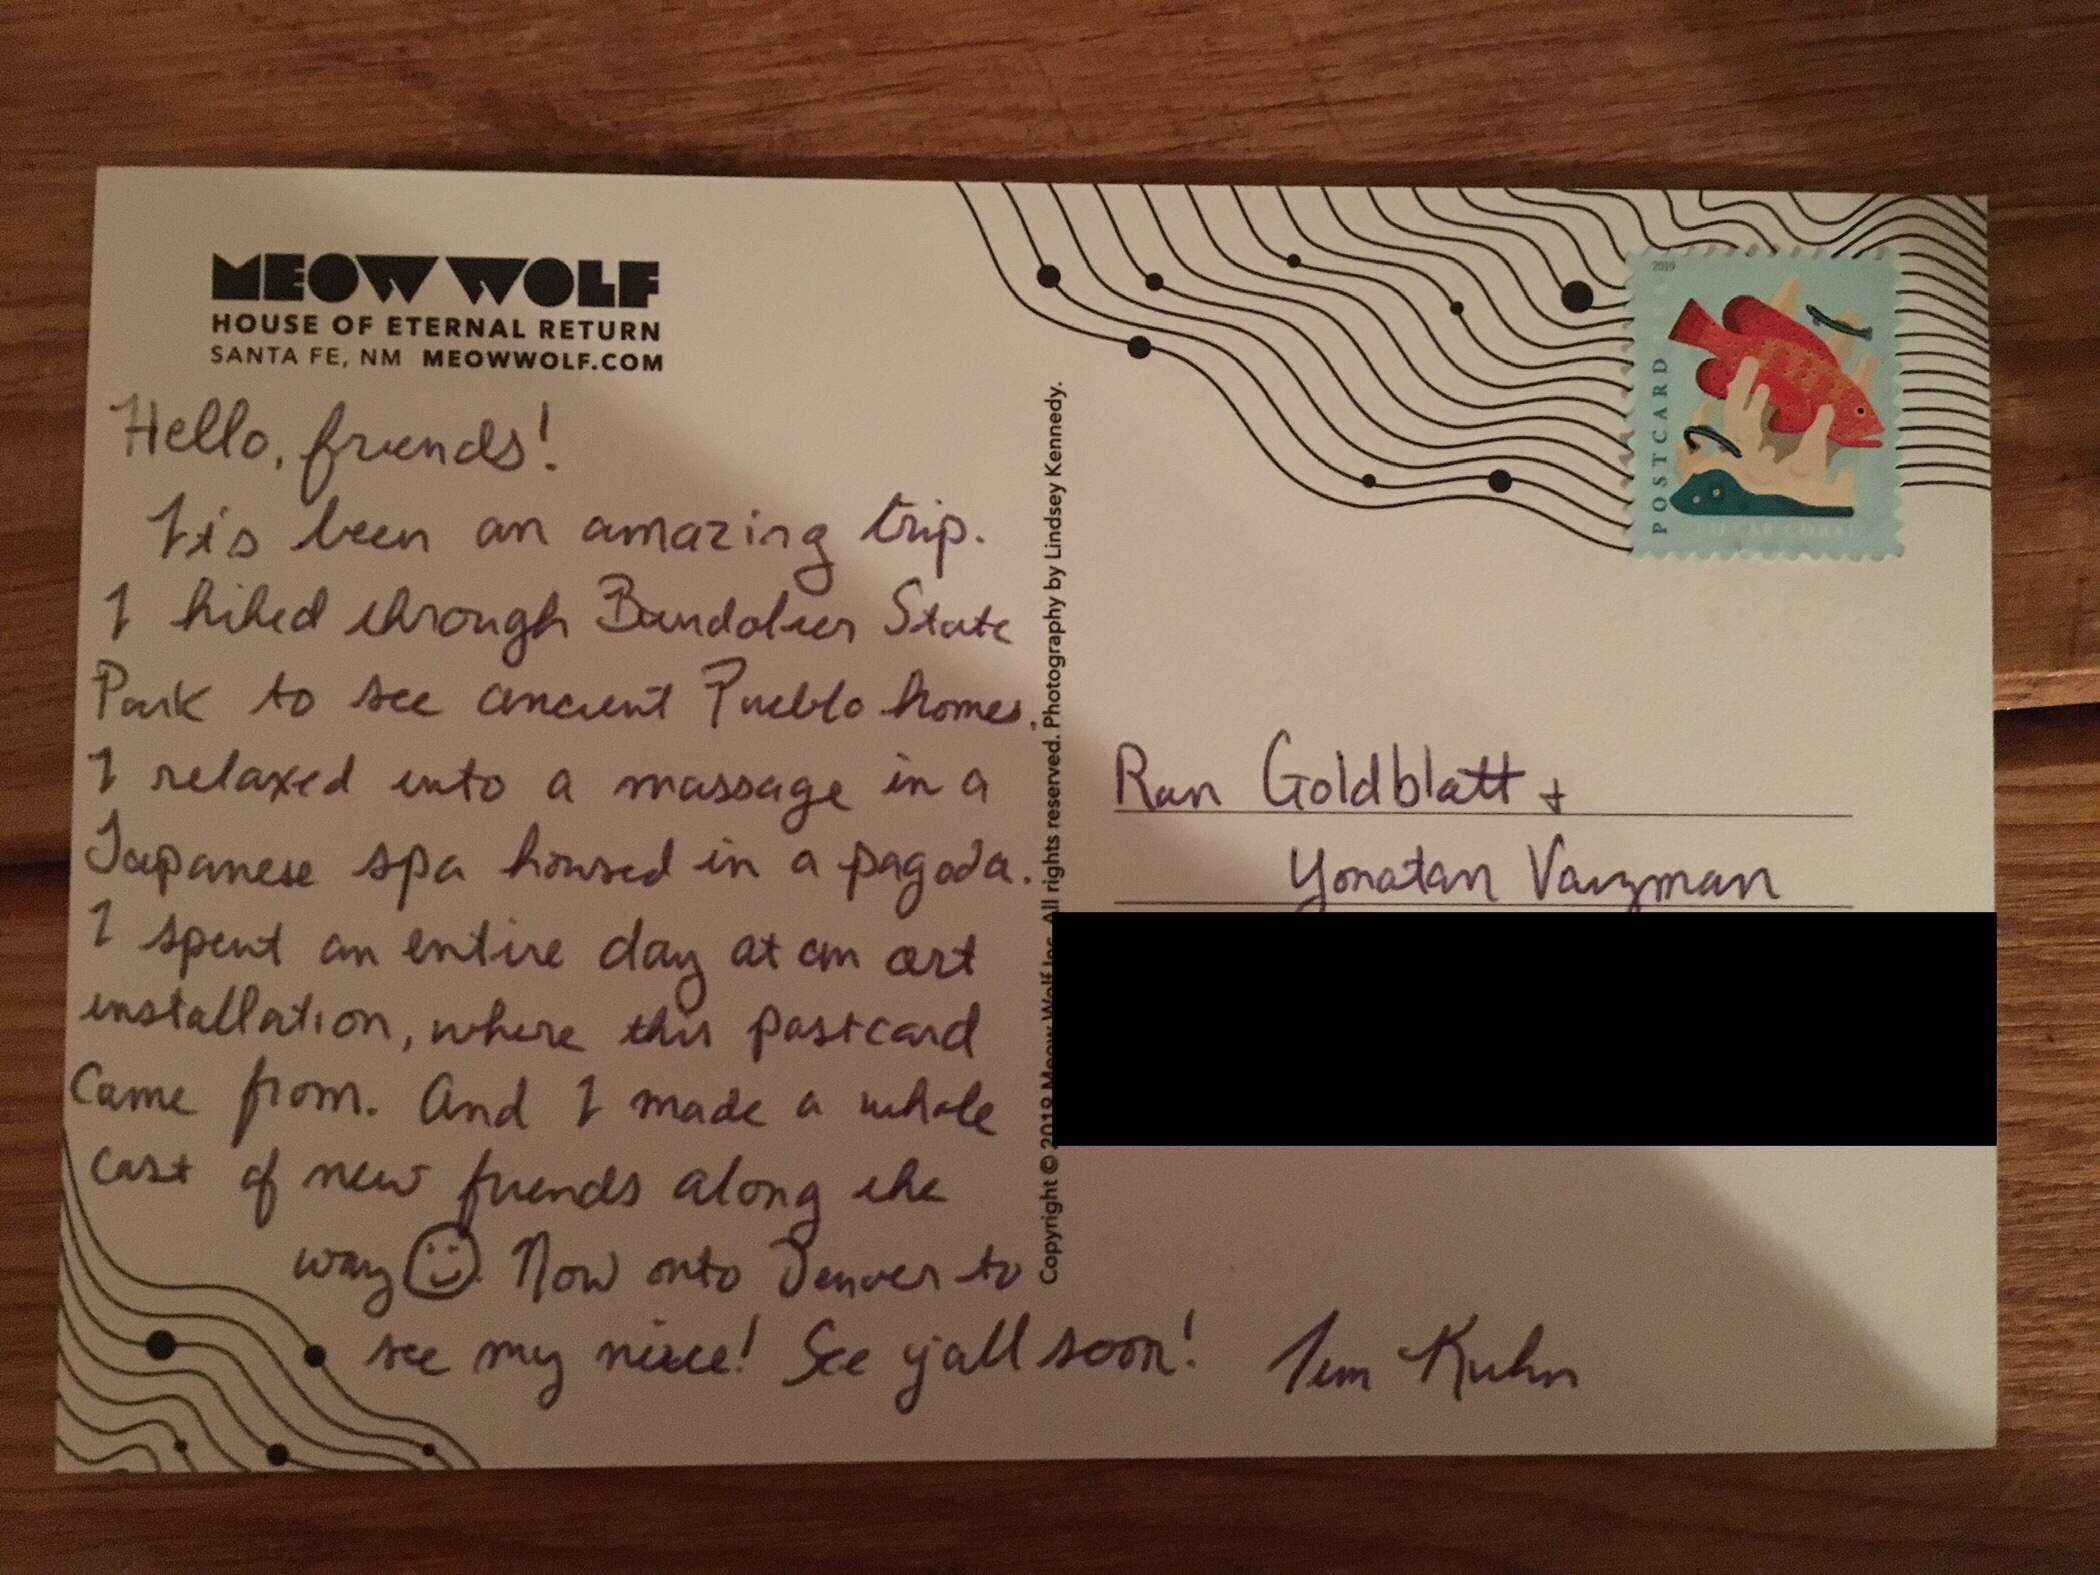 MEOW WOLF
HOUSE OF ETERNAL RETURN
SANTA FE, NM MEOWWOLF.COM
Hello, friends!
It's been an amazing trip.
I hiked through Bandolier State
Park to see ancient Pueblo homes.
I relaxed into a massage in a
Japanese spa housed in a pagoda.
I spent an entire day at an art
installation, where this postcard
came from. And I made a whole
cast of new friends along the
way ☺. Now onto Denver to
see my niece! See y'all soon! Tim Kuhn
Copyright © 2018 Meow Wolf Inc. All rights reserved. Photography by Lindsey Kennedy.
2019
POSTCARD
PILLAR CORAL
Ran Goldblatt +
Yonatan Vaizman